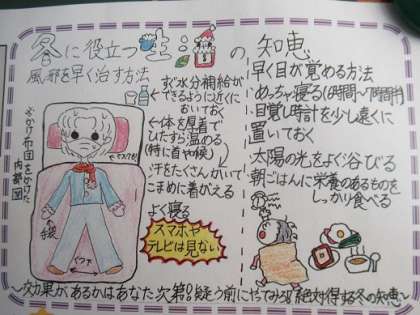 冬に役立つ生活の知恵
風邪を早く治す方法
すぐ水分補給が
できるように近くに
おいておく
←体を厚着で
ひたすら温める
(特に首や喉)
汗をたくさんかいて
こまめに着がえる
よく寝る
スマホや
テレビは見ない
※かけ布団をかけた
内部図
マスク
手袋
早く目が覚める方法
めっちゃ寝る(6時間〜7時間半)
目覚し時計を少し遠くに
置いておく
太陽の光をよく浴びる
朝ごはんに栄養のあるものを
しっかり食べる
〜効果があるかはあなた次第!疑う前にやってみろ!絶対得する冬の知恵〜